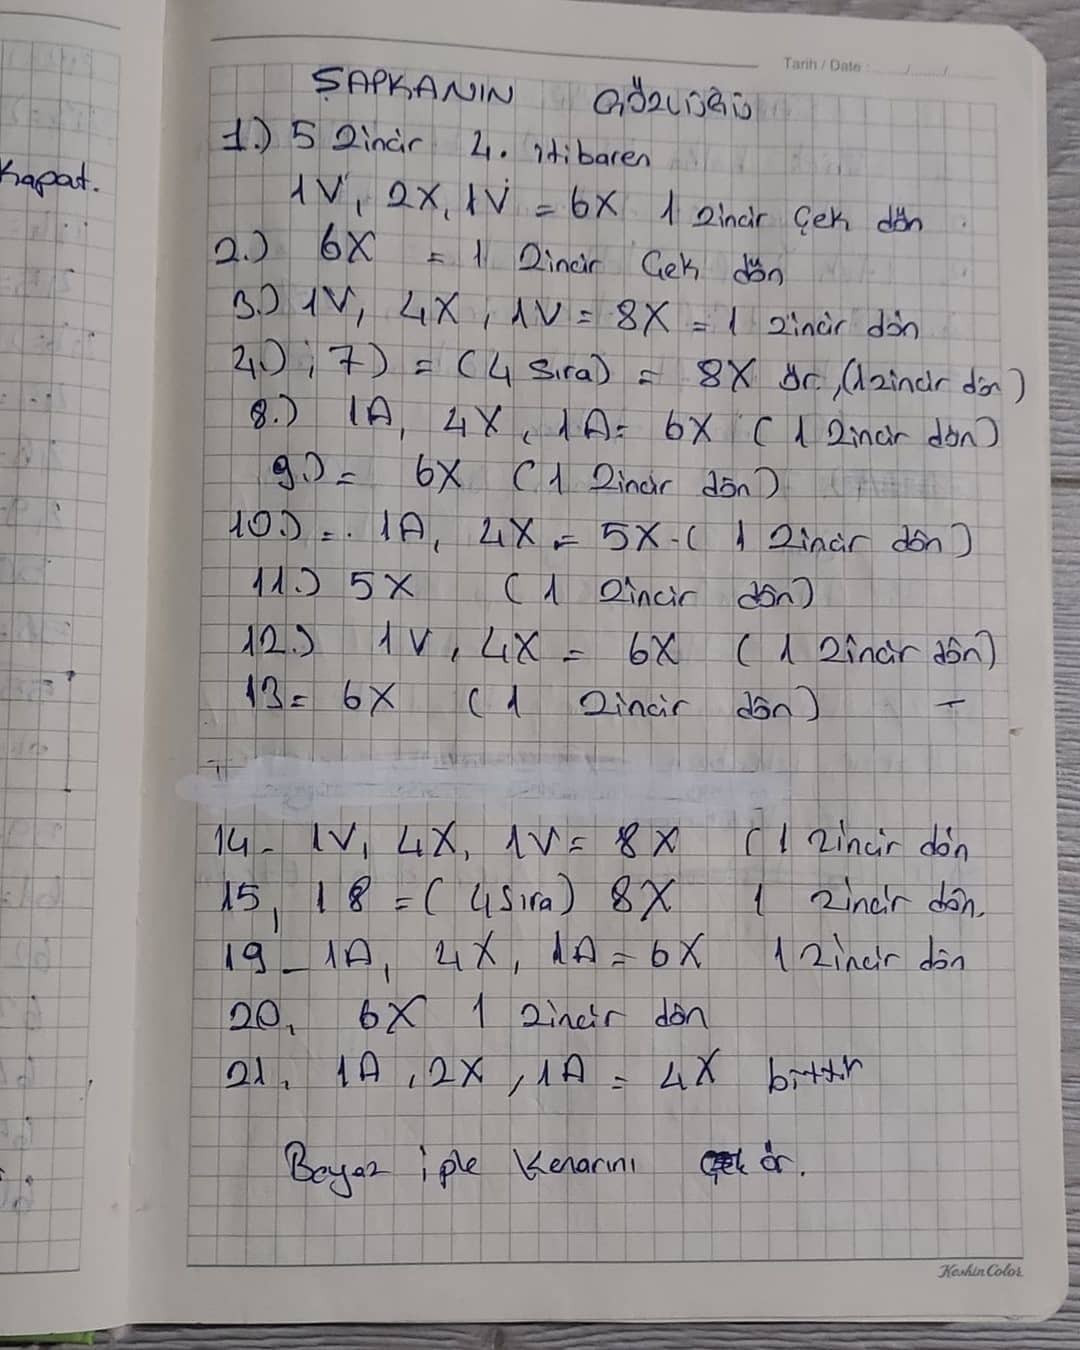 Tarih / Date : ....../....../......
ŞAPKANIN GÖZLÜĞÜ
1.) 5 Zincir 4. itibaren
Kapat.
1V, 2X, 1V = 6X 1 zincir Çek dön
2.) 6X = 1 Zincir Çek dön
3.) 1V, 4X, 1V = 8X = 1 zincir dön
4.) ; 7) = (4 Sıra) = 8X ör., (1 zincir dön)
8.) 1A, 4X, 1A = 6X (1 Zincir dön)
9.) = 6X (1 Zincir dön)
10.) = . 1A, 4X = 5X - (1 Zincir dön)
11.) 5X (1 Zincir dön)
12.) 1V, 4X = 6X (1 Zincir dön)
13 = 6X (1 Zincir dön) -
14 - 1V, 4X, 1V = 8X (1 zincir dön
15, 18 = (4 Sıra) 8X 1 zincir dön.
19 - 1A, 4X, 1A = 6X 1 zincir dön
20, 6X 1 zincir dön
21, 1A, 2X, 1A = 4X bittir
Beyaz iple Kenarını ör.
KeskinColor